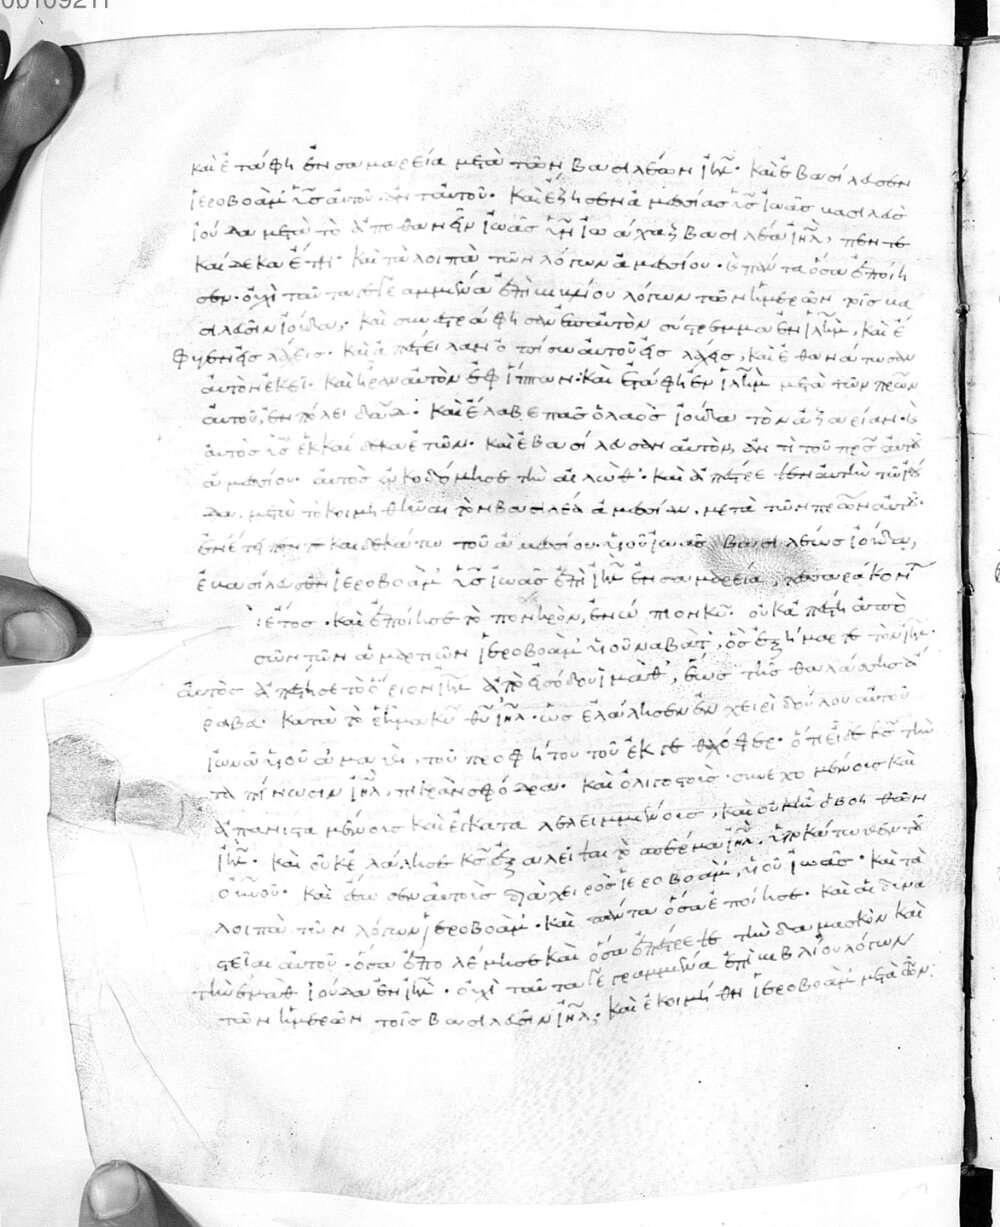 00109211
καὶ ἐτάφη ἐν σαμαρεία μετὰ τῶν βασιλέων ἰη̅λ· καὶ ἐβασίλευσεν
ἱεροβοὰμ υἱ̅ς αὐτοῦ ἀντ' αὐτοῦ· καὶ ἔζησεν ἀμεσίας υἱ̅ς ἰωὰς βασιλεὺς
ἰούδα μετὰ τὸ ἀποθανεῖν ἰωὰς υἱ̅ν ἰωάχαζ βασιλέα ἰη̅λ, πέντε
καὶ δέκα ἔτη· καὶ τὰ λοιπὰ τῶν λόγων ἀμεσίου· καὶ πάντα ὅσα ἐποίη
σεν· οὐχὶ ταῦτα γεγραμμένα ἐπὶ βιβλίου λόγων τῶν ἡμερῶν τοῖς βα
σιλεῦσιν ἰούδα· καὶ συνεστράφησαν ἐπ' αὐτὸν σύστρεμμα ἐν ἰλη̅μ, καὶ ἔ
φυγεν εἰς λάχεις· καὶ ἀπέστειλαν ὀπίσω αὐτοῦ εἰς λάχεις, καὶ ἐθανάτωσαν
αὐτὸν ἐκεῖ· καὶ ἦραν αὐτὸν ἐφ' ἵππων· καὶ ἐτάφη ἐν ἰλη̅μ μετὰ τῶν πρ̅ων
αὐτοῦ, ἐν πόλει δα̅δ· καὶ ἔλαβε πᾶς ὁ λαὸς ἰούδα τὸν ἀζαρίαν· καὶ
αὐτὸς υἱ̅ς ἑκκαίδεκα ἐτῶν· καὶ ἐβασίλευσαν αὐτὸν, ἀντὶ τοῦ πρ̅ς αὐτοῦ
ἀμεσίου· αὐτὸς ὠκοδόμησε τὴν αἰλώθ· καὶ ἀπέστρεψεν αὐτὴν τῶ ἰού
δα, μετὰ τὸ κοιμηθῆναι τὸν βασιλέα ἀμεσίαν, μετὰ τῶν πρ̅ων αὐτοῦ·
ἐν ἔτει πέντε καὶ δεκάτω τοῦ ἀμεσίου υἱοῦ ἰωὰς βασιλέως ἰούδα,
ἐβασίλευσεν ἱεροβοὰμ υἱ̅ς ἰωὰς ἐπὶ ἰη̅λ ἐν σαμαρεία, τεσσαράκοντα
ἔτος· καὶ ἐποίησε τὸ πονηρὸν, ἐνώπιον κ̅υ· οὐκ ἀπέστη ἀπὸ
σῶν τῶν ἁμαρτιῶν ἱεροβοὰμ υἱοῦ ναβὰτ, ὃς ἐξήμαρτε τὸν ἰη̅λ·
αὐτὸς ἀπέστησε τὸ ὅριον ἰη̅λ ἀπὸ εἰσόδου ἱμὰθ, ἕως τῆς θαλάσσης ἀ
ραβα· κατὰ τὸ ῥῆμα κ̅υ θ̅υ ἰη̅λ· ὡς ἐλάλησεν ἐν χειρὶ δούλου αὐτοῦ
ἰωνᾶ υἱοῦ ἀμαθὶ, τοῦ προφήτου τοῦ ἐκ γεθχόφερ· ὅτι εἶδε κ̅ς τὴν
ταπείνωσιν ἰη̅λ, πικρὰν σφόδρα· καὶ ὀλιγοστοὺς συνεχομένους καὶ
ἐσπανισμένους καὶ ἐγκαταλελειμμένους, καὶ οὐκ ἦν ὁ βοηθῶν
ἰη̅λ· καὶ οὐκ ἐλάλησε κ̅ς ἐξαλεῖψαι τὸ σπέρμα ἰη̅λ, ὑποκάτωθεν τοῦ
ο̅υ̅ν̅οῦ· καὶ ἔσωσεν αὐτοὺς διὰ χειρὸς ἱεροβοὰμ, υἱοῦ ἰωὰς· καὶ τὰ
λοιπὰ τῶν λόγων ἱεροβοὰμ· καὶ πάντα ὅσα ἐποίησε· καὶ αἱ δυνα
στεῖαι αὐτοῦ· ὅσα ἐπολέμησε καὶ ὅσα ἐπέστρεψε τὴν δαμασκὸν καὶ
τὴν ἐμὰθ ἰούδα ἐν ἰη̅λ· οὐχὶ ταῦτα γεγραμμένα ἐπὶ βιβλίου λόγων
τῶν ἡμερῶν τοῖς βασιλεῦσιν ἰη̅λ· καὶ ἐκοιμήθη ἱεροβοὰμ μετὰ τῶν